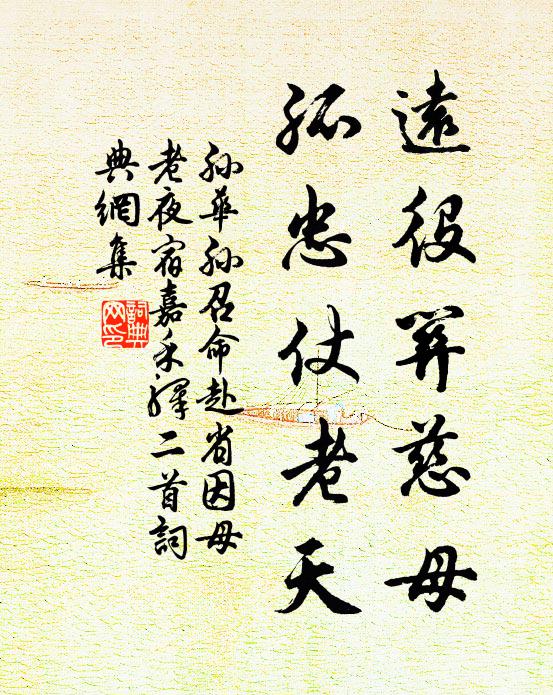 遠役慈母
孤忠仗老天
孫華孫召命赴省因母
老夜宿嘉禾驛二首詞
典網集
詞典
网印